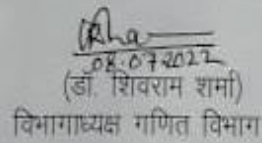 08.07.2022
(डॉ. शिवराम शर्मा)
विभागाध्यक्ष गणित विभाग